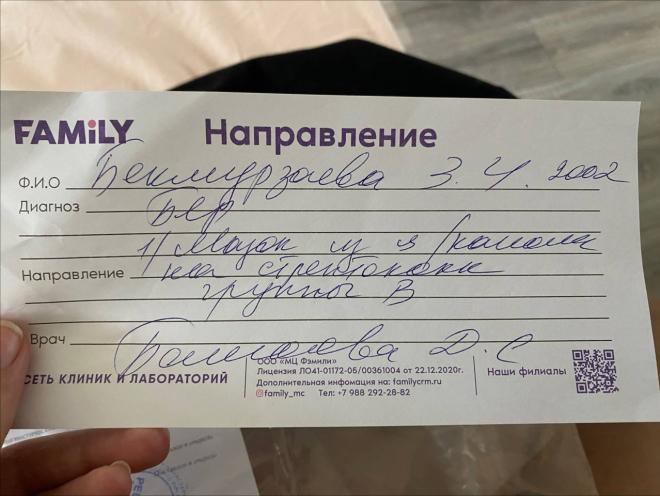 FAMiLY Направление
Ф.И.О Бекмурзаева З. Ч. 2002
Диагноз Бер
1) Мазок из ц/канала
Направление на стрептококк
группы В
Врач Д. С
СЕТЬ КЛИНИК И ЛАБОРАТОРИЙ
ООО «МЦ Фэмили»
Лицензия ЛО41-01172-05/00361004 от 22.12.2020г.
Дополнительная информация на: familycrm.ru
family_mc Тел: +7 988 292-28-82
Наши филиалы